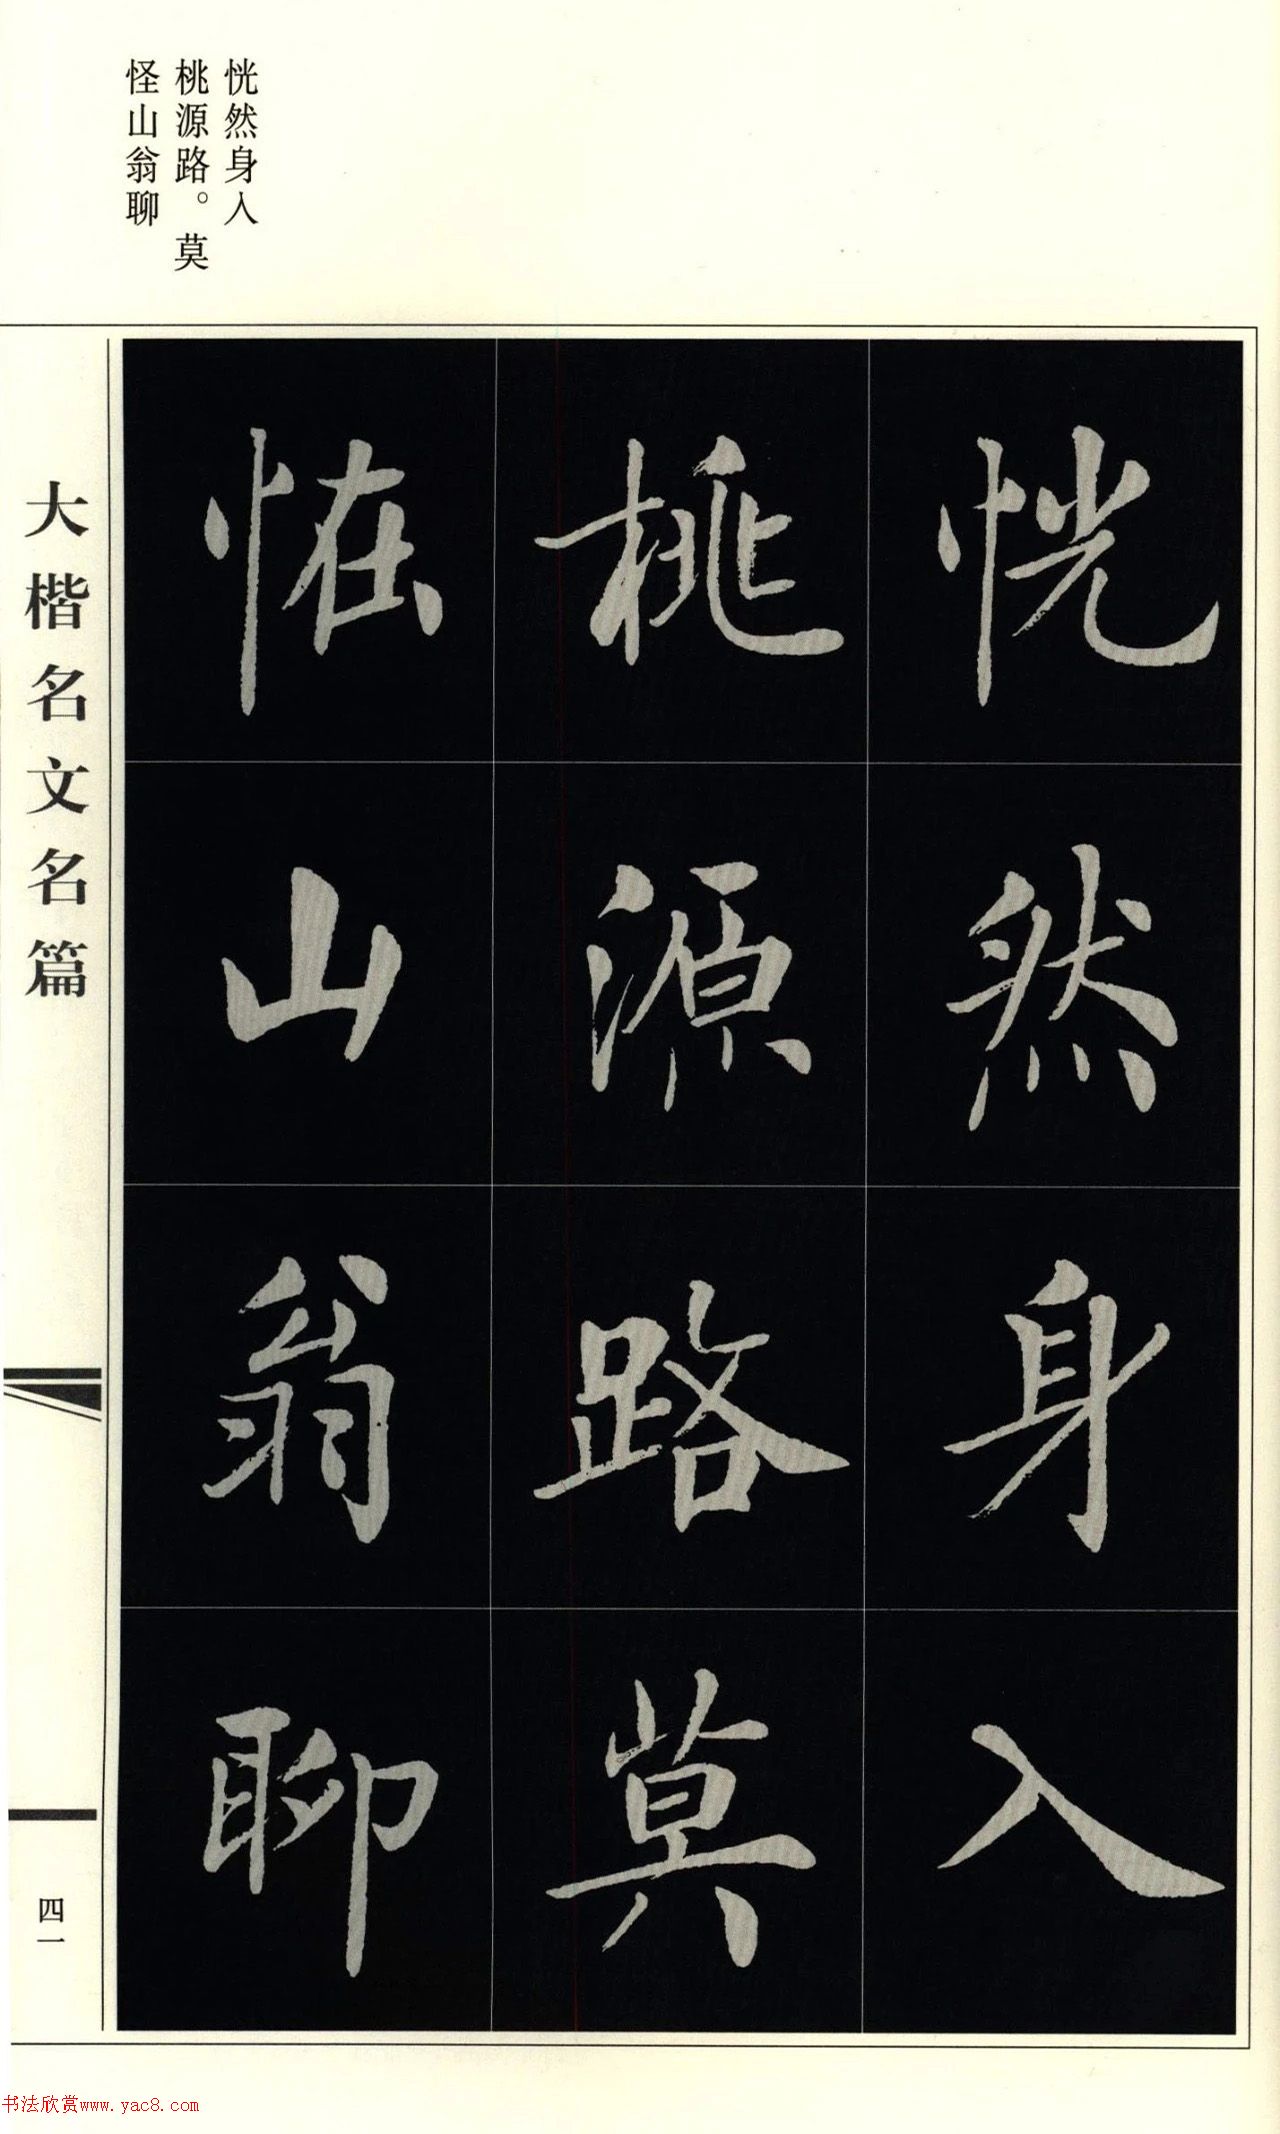 恍然身入
桃源路。莫
怪山翁聊
恍然身入
桃源路莫
恠山翁聊
大楷名文名篇
四一
书法欣赏www.yac8.com